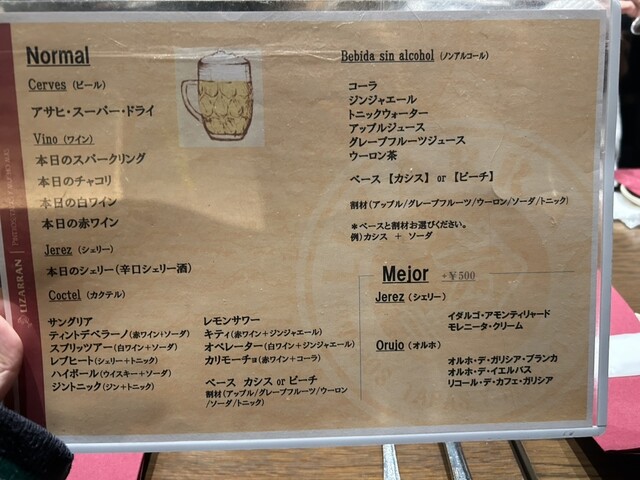 Normal
Cerves (ビール)
アサヒ・スーパー・ドライ
Vino (ワイン)
本日のスパークリング
本日のチャコリ
本日の白ワイン
本日の赤ワイン
Jerez (シェリー)
本日のシェリー(辛口シェリー酒)
Coctel (カクテル)
サングリア
ティントデベラーノ(赤ワイン+ソーダ)
スプリッツアー(白ワイン+ソーダ)
レブヒート(シェリー+トニック)
ハイボール(ウイスキー+ソーダ)
ジントニック(ジン+トニック)
レモンサワー
キティ(赤ワイン+ジンジャエール)
オペレーター(白ワイン+ジンジャエール)
カリモーチョ(赤ワイン+コーラ)
ベース カシス or ピーチ
割材(アップル/グレープフルーツ/ウーロン
/ソーダ/トニック)
Bebida sin alcohol (ノンアルコール)
コーラ
ジンジャエール
トニックウォーター
アップルジュース
グレープフルーツジュース
ウーロン茶
ベース 【カシス】 or 【ピーチ】
割材(アップル/グレープフルーツ/ウーロン/ソーダ/トニック)
*ベースと割材お選びください。
例)カシス + ソーダ
Mejor +¥500
Jerez (シェリー)
イダルゴ・アモンティリャード
モレニータ・クリーム
Orujo (オルホ)
オルホ・デ・ガリシア・ブランカ
オルホ・デ・イエルバス
リコール・デ・カフェ・ガリシア
LIZARRAN